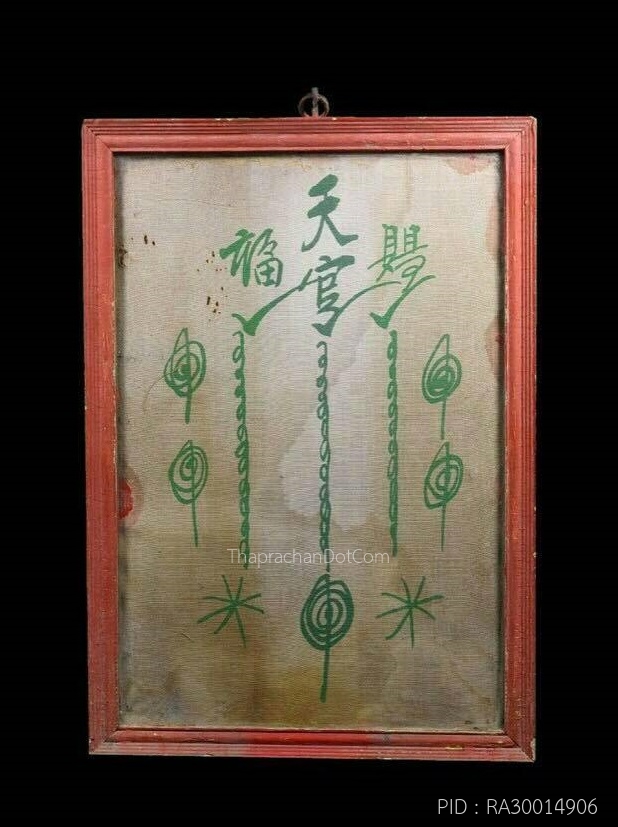 天
福 賜
官
ThaprachanDotCom
PID : RA30014906